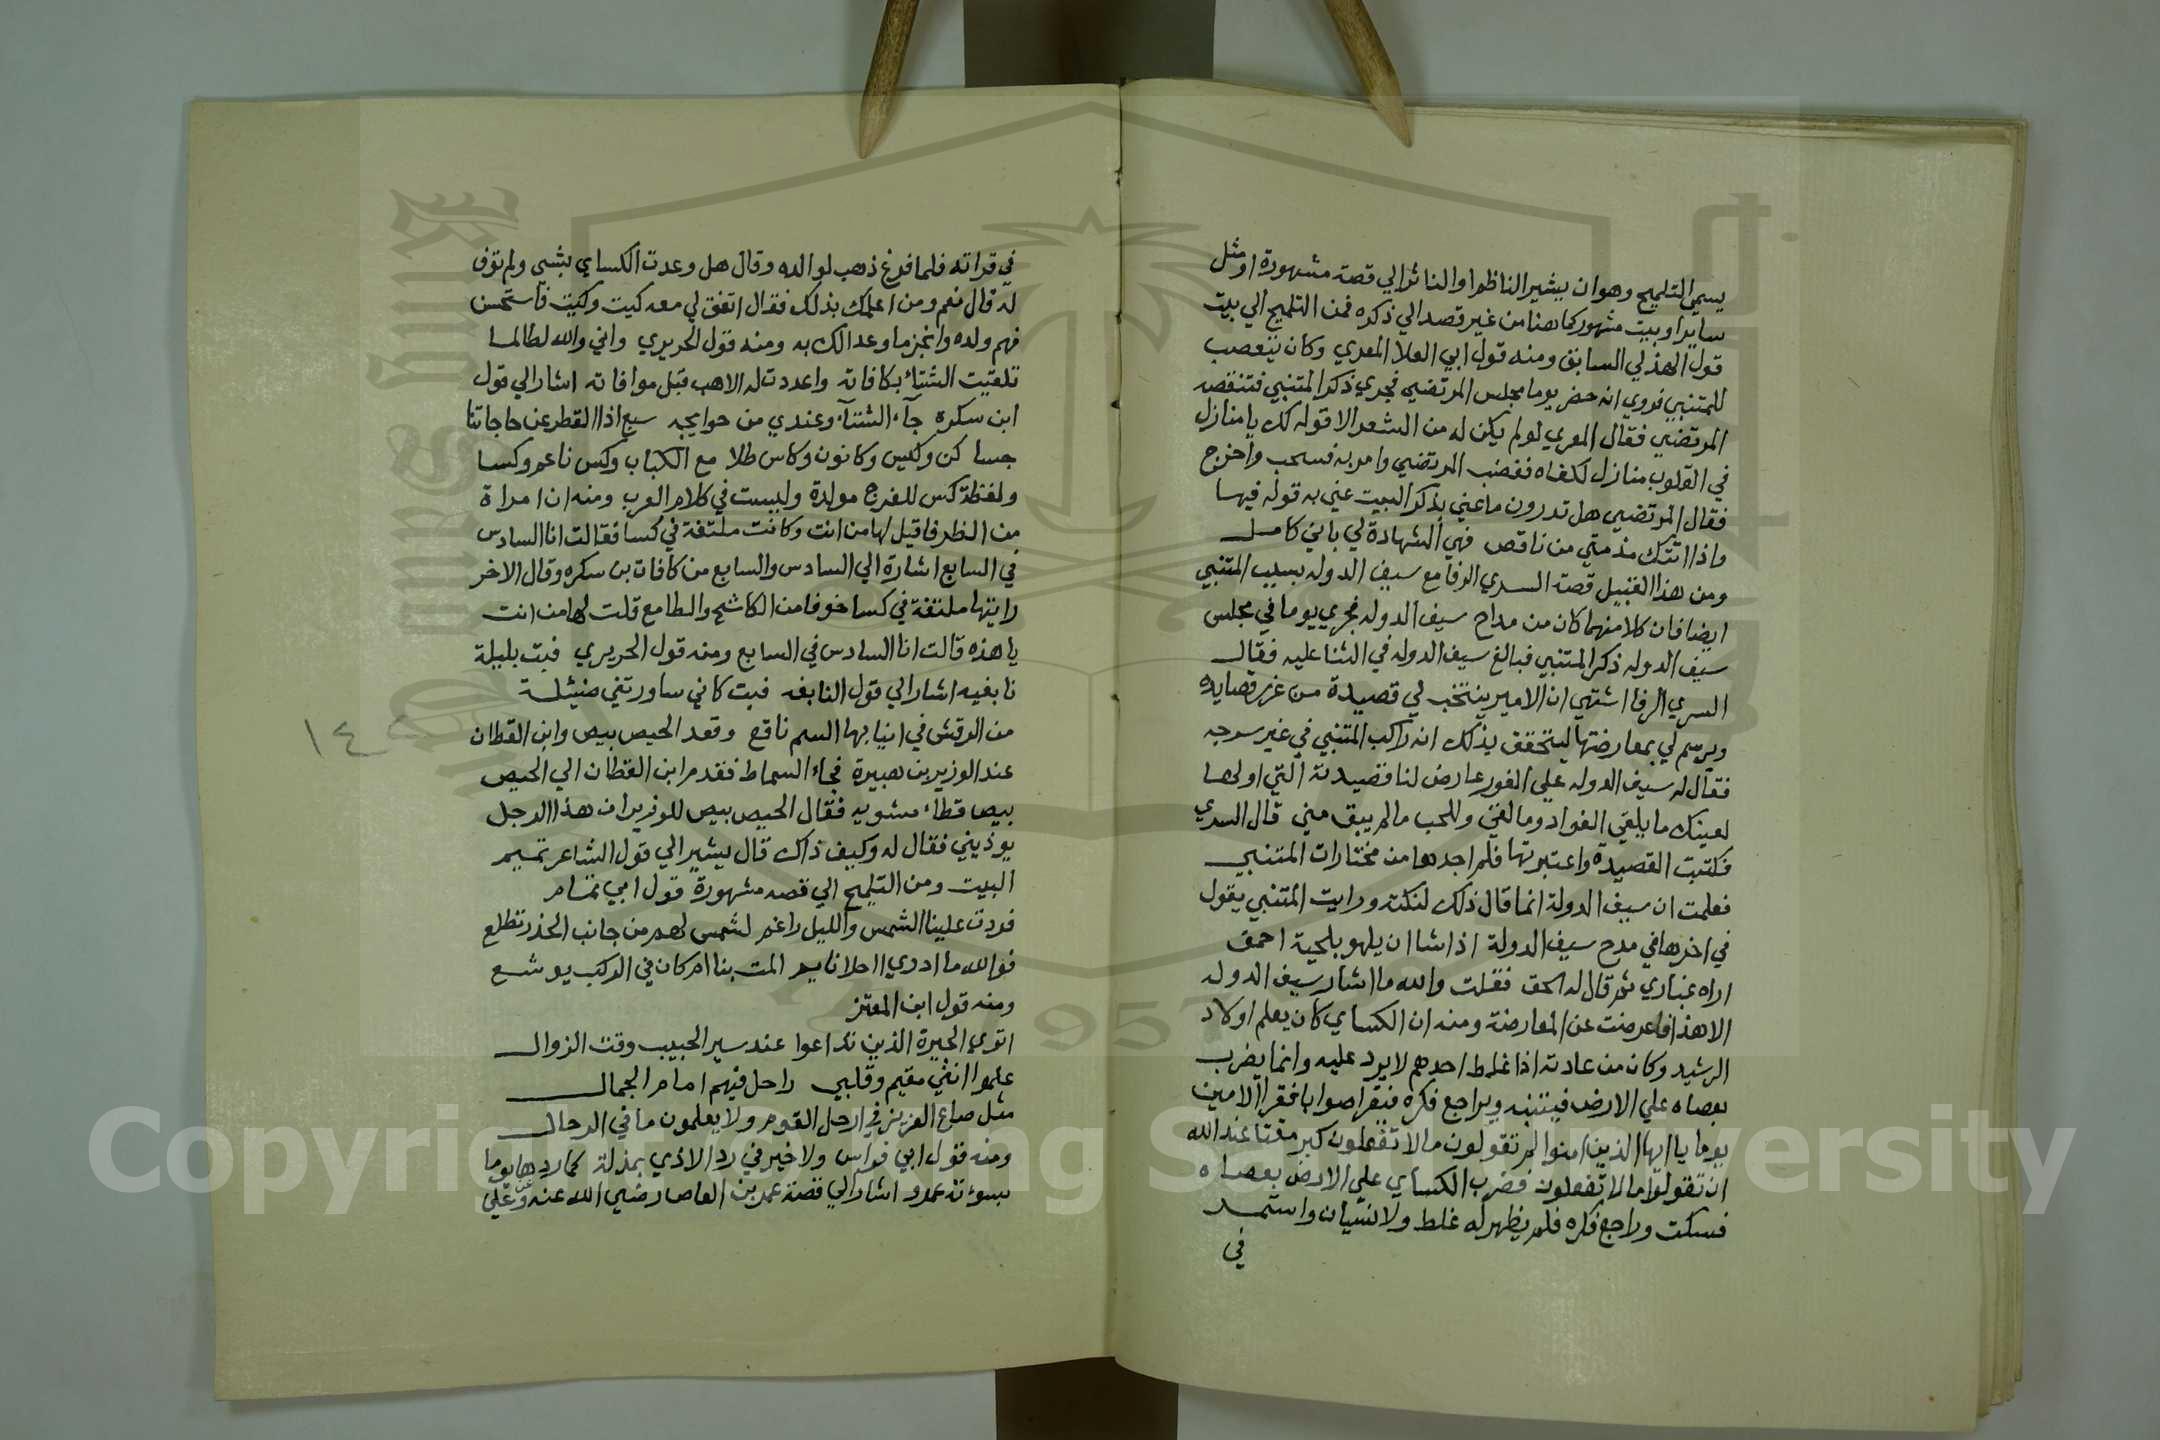 يسمي التلميح وهو ان يشير الناظم او الناثر الي قصة مشهورة او مثل
ساير او بيت مشهور كما هنا من غير قصد الي ذكره فمن التلميح الي بيت
قول الهذلي السابق ومنه قول ابي العلا المعري وكان يتعصب
للمتنبي فروي انه حضر يوما مجلس المرتضي فجري ذكر المتنبي فتنقصه
المرتضي فقال المعري لو لم يكن له من الشعر الا قوله لك يا منازل
في القلوب منازل لكفاه فغضب المرتضي وامر به فسحب واخرج
فقال المرتضي هل تدرون ما عني بذكر البيت عني به قوله فيها
واذا اتتك مذمتي من ناقص فهي الشهادة لي باني كامل
ومن هذا القبيل قصة السري الرفا مع سيف الدوله بسبب المتنبي
ايضا فان كلا منهما كان من مداح سيف الدوله فجري يوما في مجلس
سيف الدوله ذكر المتنبي فبالغ سيف الدوله في الثنا عليه فقال
السري الرفا اشتهي ان الامير ينتخب لي قصيدة من غرر قصايده
ويرسم لي بمعارضتها ليتحقق بذلك انه راكب المتنبي في غير سرجه
فقال له سيف الدوله علي الفور عارض لنا قصيدته التي اولها
لعينك ما يلقي الفواد وما لقي وللحب ما لم يبق مني قال السري
فكتبت القصيدة واعتبرتها فلم اجدها من مختارات المتنبي
فعلمت ان سيف الدولة انما قال ذلك لنكتة ورايت المتنبي يقول
في اخرها في مدح سيف الدولة اذا شا ان يلهو بلحية احمق
اراه غباري ثم قال له الحق فقلت والله ما اشار سيف الدوله
الا هذا فاعرضت عن المعارضة ومنه ان الكساي كان يعلم اولاد
الرشيد وكان من عادته اذا غلط احدهم لا يرد عليه وانما يضرب
بعصاه علي الارض فيتنبه ويراجع فكره فيقرا صوابا فقرا الامين
يوما يا ايها الذين امنوا لم تقولون ما لا تفعلون كبر مقتا عند الله
ان تقولوا ما لا تفعلون فضرب الكساي علي الارض بعصاه
فسكت وراجع فكره فلم يظهر له غلط ولا نسيان واستمر
في
في قراته فلما فرغ ذهب لوالده وقال هل وعدت الكساي بشي ولم توف
له قال نعم ومن اعلمك بذلك فقال اتفق لي معه كيت وكيت فاستحسن
فهم ولده وانجز ما وعد الك به ومنه قول الحريري واني والله لطالما
تلقيت الشتاء بكافاته واعددت له الاهب قبل موافاته اشار الي قول
ابن سكره جآء الشتآء وعندي من حوايجه سبع اذا القطر عن حاجاتنا
حبسا كن وكيس وكانون وكاس طلا مع الكباب وكس ناعم وكسا
ولفظة كس للفرج مولدة وليست في كلام العرب ومنه ان امراة
من الظرفا قيل لها من انت وكانت ملتفة في كسا فقالت انا السادس
في السابع اشارة الي السادس والسابع من كافات بن سكره وقال الاخر
رايتها ملتفة في كسا خوفا من الكاشح والطامع قلت لها من انت
يا هذه قالت انا السادس في السابع ومنه قول الحريري فبت بليلة
نابغيه اشار الي قول النابغه فبت كاني ساورتني ضئيلة
من الرقش في انيابها السم ناقع وقعد الحيص بيص وابن القطان
عند الوزير بن هبيرة فجاء السماط فقدم ابن القطان الي الحيص
بيص قطاء مشويه فقال الحيص بيص للوزير ان هذا الرجل
يوذيني فقال له وكيف ذاك قال يشير الي قول الشاعر تميم
البيت ومن التلميح الي قصه مشهورة قول ابي تمام
فردت علينا الشمس والليل راغم لشمس لهم من جانب الخدر تطلع
فوالله ما ادري ااحلا نايم المت بنا ام كان في الركب يوشع
ومنه قول ابن المعتز
اتري الجيرة الذين تداعوا عند سير الحبيب وقت الزوال
علموا انني مقيم وقلبي راحل فيهم امام الجمال
مثل صاع العزيز في ارحل القوم ولا يعلمون ما في الرحال
ومنه قول ابي فراس ولا خير في رد الاذي بمذلة كما ردها يوما
بسوءته عمرو اشار الي قصة عمر بن العاص رضي الله عنه وعلي
١٤٤
Copyright © King Saud University
1957